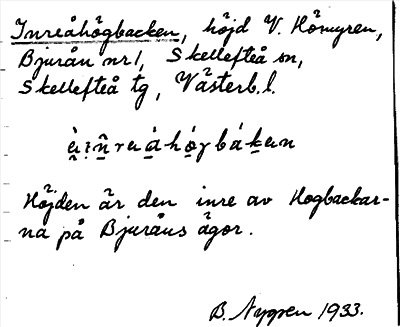 Inreåhögbacken, höjd V. Hömyren,
Bjurån nr 1, Skellefteå sn,
Skellefteå tg, Västerb. l.
Höjden är den inre av Högbackar-
na på Bjuråns ägor.
B. Nygren 1933.